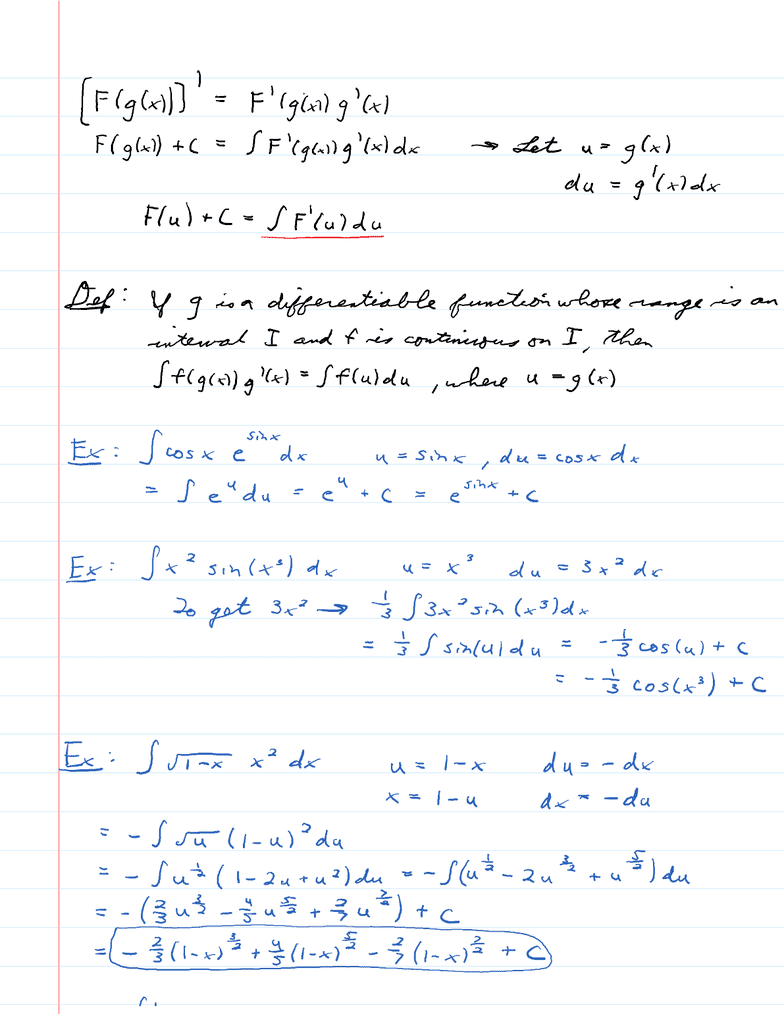 [F(g(x))]' = F'(g(x)) g'(x)
F(g(x)) + C = ∫ F'(g(x)) g'(x) dx → Let u = g(x)
du = g'(x) dx
F(u) + C = ∫ F'(u) du
Def: If g is a differentiable function whose range is an
interval I and f is continuous on I, then
∫ f(g(x)) g'(x) = ∫ f(u) du, where u = g(x)
Ex: ∫ cos x e^(sin x) dx u = sin x, du = cos x dx
= ∫ e^u du = e^u + C = e^(sin x) + C
Ex: ∫ x² sin(x³) dx u = x³ du = 3x² dx
To get 3x² → 1/3 ∫ 3x² sin(x³) dx
= 1/3 ∫ sin(u) du = -1/3 cos(u) + C
= -1/3 cos(x³) + C
Ex: ∫ √(1-x) x² dx u = 1-x du = -dx
x = 1-u dx = -du
= -∫ √u (1-u)² du
= -∫ u^(1/2) (1-2u+u²) du = -∫ (u^(1/2) - 2u^(3/2) + u^(5/2)) du
= -(2/3 u^(3/2) - 4/5 u^(5/2) + 2/7 u^(7/2)) + C
= -2/3 (1-x)^(3/2) + 4/5 (1-x)^(5/2) - 2/7 (1-x)^(7/2) + C